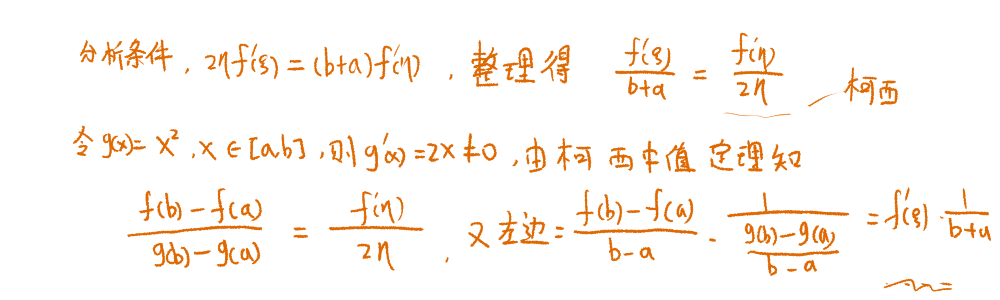 分析条件, 2ηf'(ξ)=(b+a)f'(η), 整理得 f'(ξ)/(b+a) = f'(η)/(2η) 柯西
令 g(x)=x², x∈[a,b], 则 g'(x)=2x≠0, 由柯西中值定理知
(f(b)-f(a))/(g(b)-g(a)) = f'(η)/(2η), 又左边 = (f(b)-f(a))/(b-a) · 1/((g(b)-g(a))/(b-a)) = f'(ξ) · 1/(b+a)